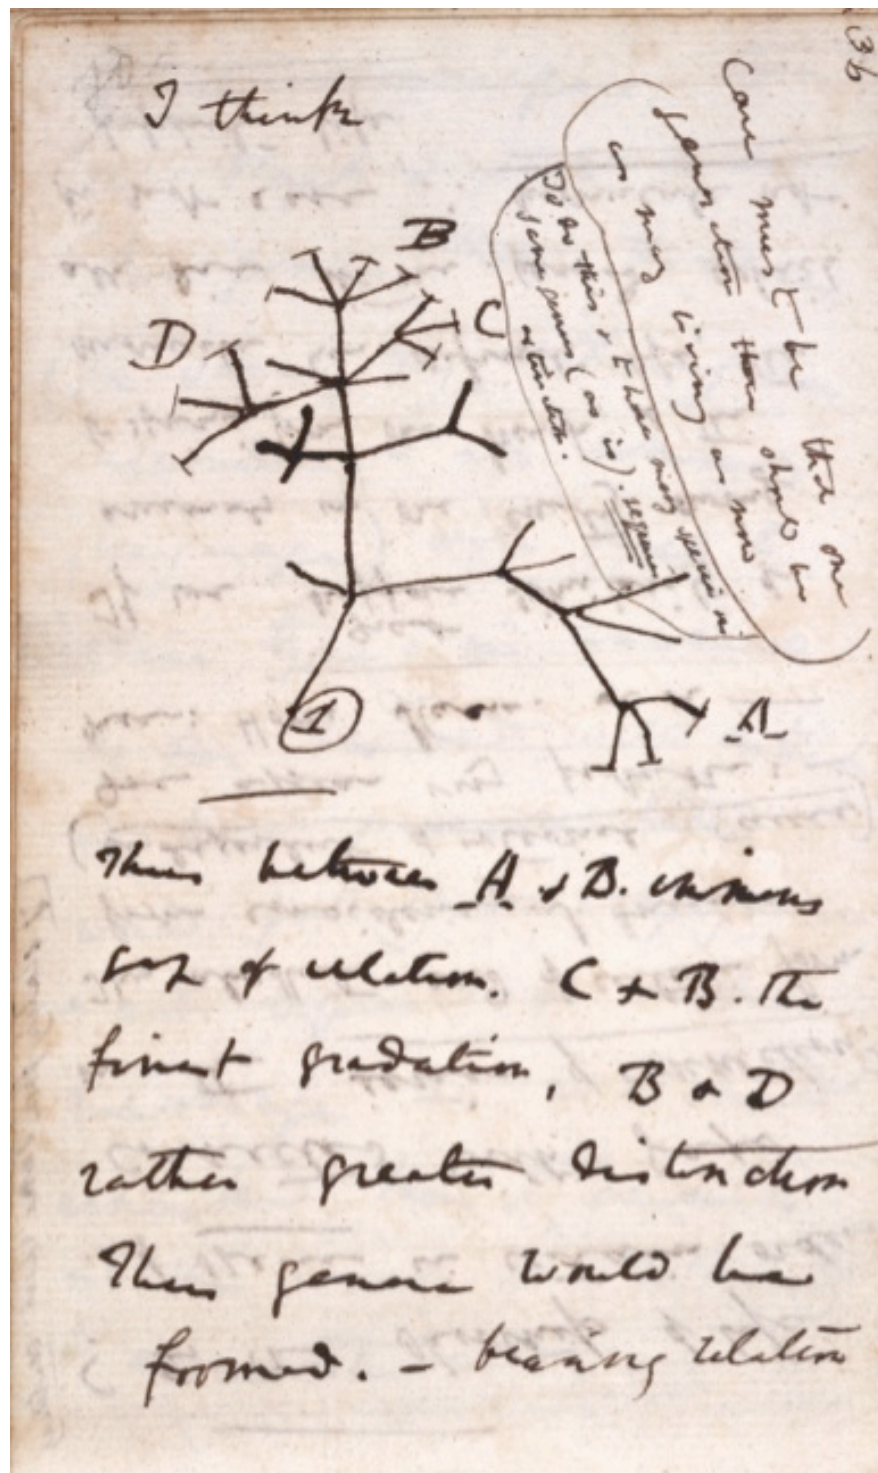 36
I think
Case must be that one
generation then should be
as many living as now
To do this & to have many species in
same genus (as is). requires
extinction.
B
C
D
1
A
Thus between A & B. immens
gap of relation. C & B. The
finest gradation, B & D
rather greater distinction
Thus genera would be
formed. — bearing relation